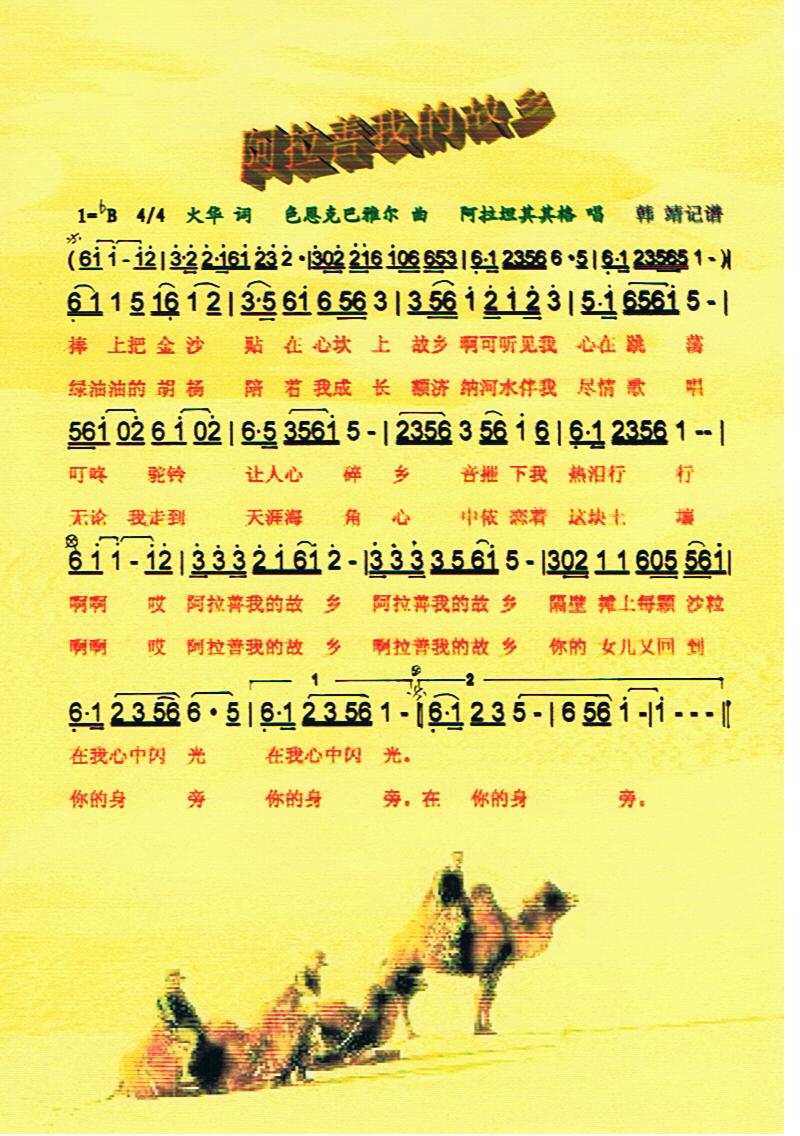 阿拉善我的故乡
1=♭B 4/4 火华 词 色恩克巴雅尔 曲 阿拉坦其其格 唱 韩 靖记谱
(6i i - i2 | 3·2 2·161 23 2 · | 302 216 106 653 | 6·1 2356 6 · 5 | 6·1 23565 1 - )|
6 1 1 5 16 1 2 | 3·5 61 6 56 3 | 3 56 1 2 1 2 3 | 5·1 6561 5 - |
捧 上把 金 沙 贴 在 心坎 上 故乡 啊可听见我 心在 跳 荡
绿油油的 胡 杨 陪 着 我成 长 额济 纳河水伴我 尽情 歌 唱
561 02 6 1 02 | 6·5 3561 5 - | 2356 3 56 1 6 | 6·1 2356 1 -- |
叮咚 驼铃 让人心 碎 乡 音摧 下我 热泪行 行
无论 我走到 天涯海 角 心 中依 恋着 这块土 壤
6 1 1 - 12 | 3 3 3 2 1 61 2 - | 3 3 3 3 5 61 5 - | 302 1 1 605 561 |
啊啊 哎 阿拉善我的故 乡 阿拉善我的故 乡 隔壁 摊上每颗 沙粒
啊啊 哎 阿拉善我的故 乡 啊拉善我的故 乡 你的 女儿又回 到
1 2
6·1 2 3 56 6 · 5 | 6·1 2 3 56 1 - 𝄂 6·1 2 3 5 - | 6 56 1 - | 1 - - - ‖
在我心中闪 光 在我心中闪 光。
你的身 旁 你的身 旁。在 你的身 旁。